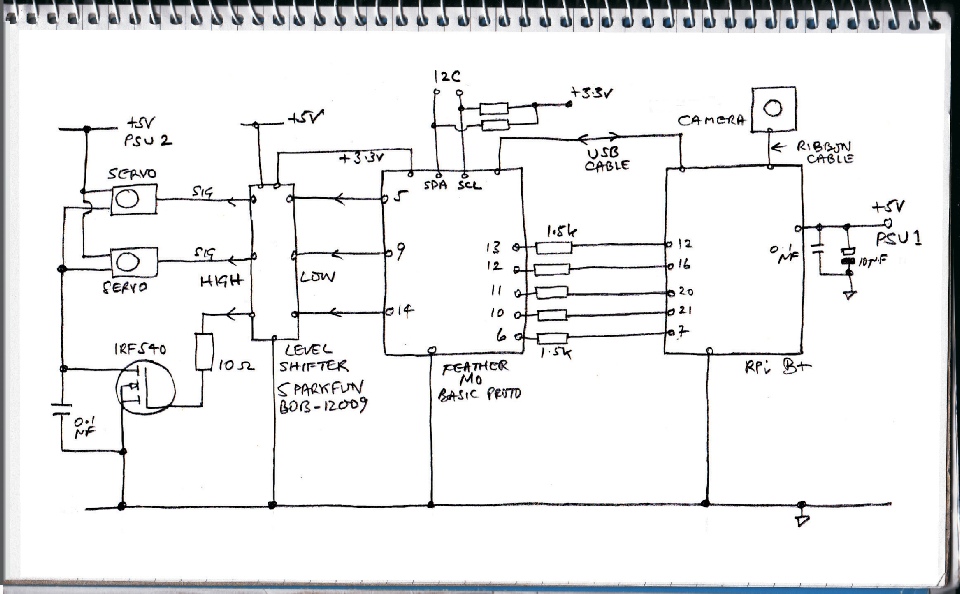 I2C
+3.3V
CAMERA
RIBBON
CABLE
+5V
PSU 2
+5V
+3.3V
USB
CABLE
SERVO
SIG
SDA SCL
5
+5V
PSU1
9
13
1.5k
12
0.1
10µF
SIG
HIGH
LOW
SERVO
12
16
11
20
14
10
21
6
7
1.5k
IRF540
10Ω
LEVEL
SHIFTER
SPARKFUN
BOB-12009
FEATHER
M0
BASIC PROTO
RPi B+
0.1